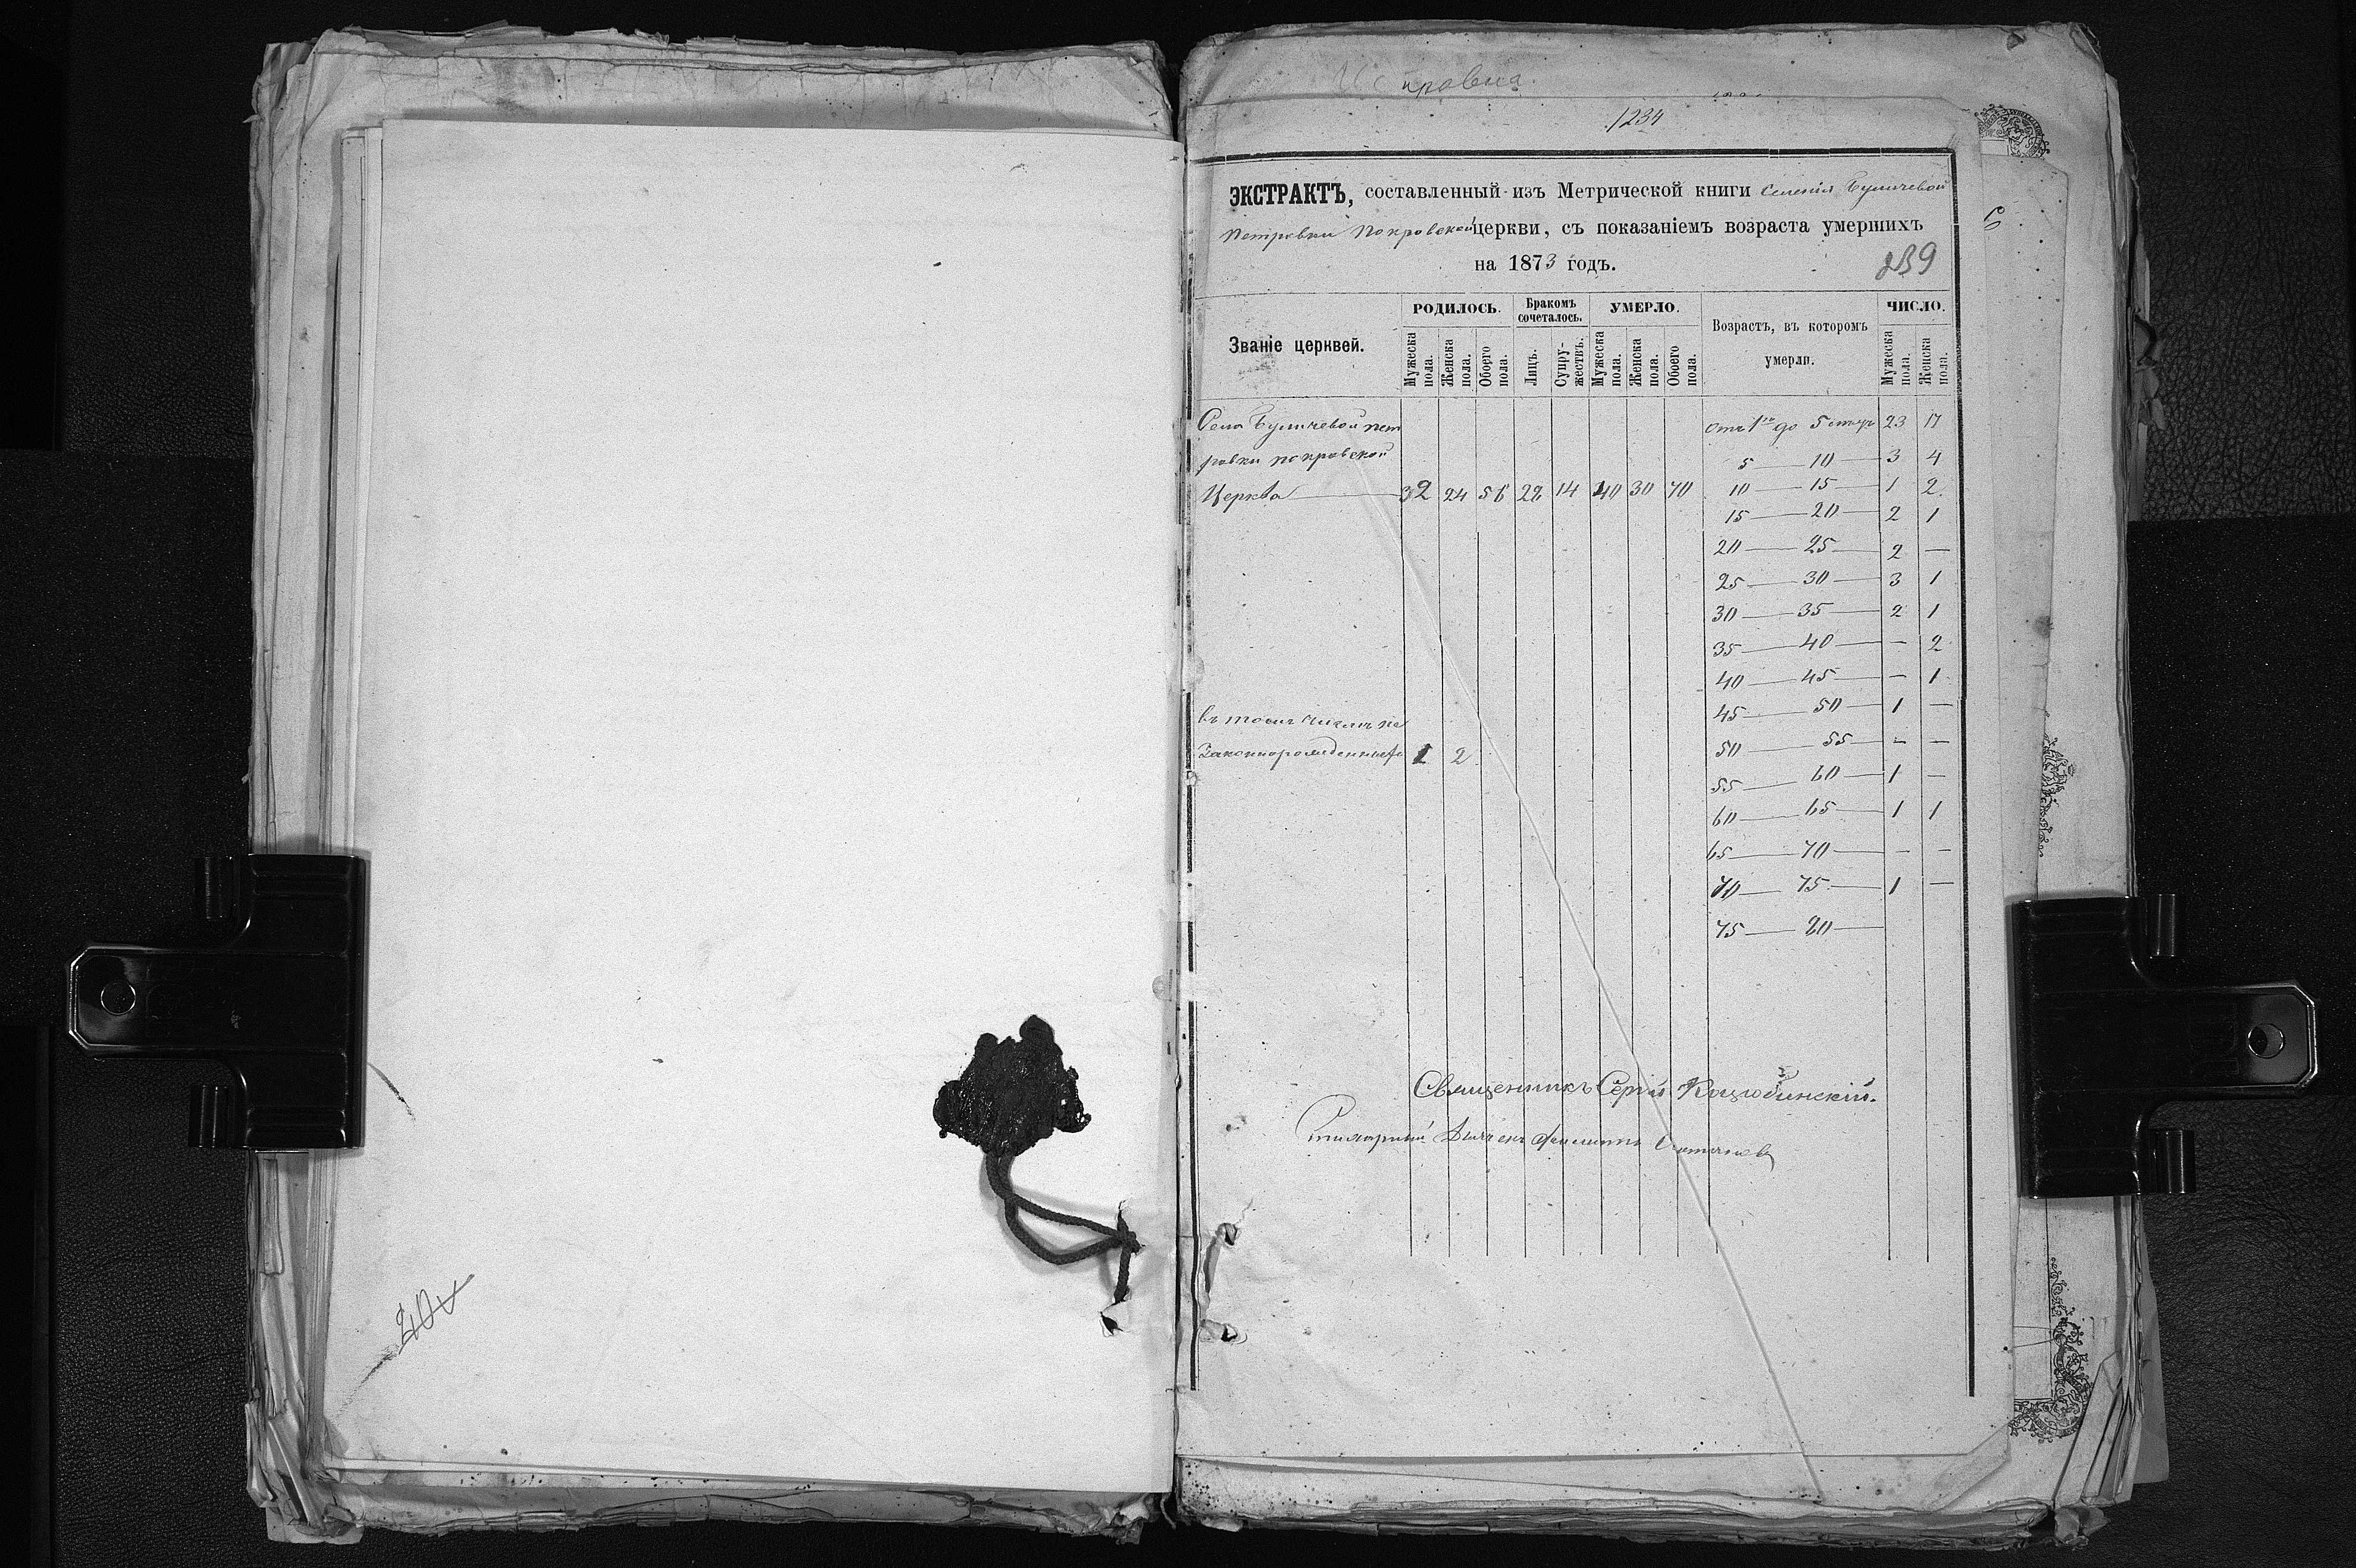 1234
ЭКСТРАКТЪ, составленный изъ Метрической книги селенія Буличевой
Петровки Покровской церкви, съ показаніемъ возраста умершихъ
на 1873 годъ.
239
Званіе церквей.
РОДИЛОСЬ.
Бракомъ сочеталось.
УМЕРЛО.
Возрастъ, въ которомъ умерли.
ЧИСЛО.
Мужеска пола.
Женска пола.
Обоего пола.
Лицъ.
Супружествъ.
Мужеска пола.
Женска пола.
Обоего пола.
Мужеска пола.
Женска пола.
Села Буличевой Пет
ровки Покровской
Церква 32 24 56 28 14 40 30 70
отъ 1 до 5 23 17
5 — 10 — 3 4
10 — 15 — 1 2
15 — 20 — 2 1
20 — 25 — 2 —
25 — 30 — 3 1
30 — 35 — 2 1
35 — 40 — — 2
40 — 45 — — 1
45 — 50 — 1 —
50 — 55 — — —
55 — 60 — 1 —
60 — 65 — 1 1
65 — 70 — — —
70 — 75 — 1 —
75 — 80 —
въ томъ числѣ не
законнорожденныхъ 1 2
Священникъ Сергій Коцюбинскій.
Филиппъ